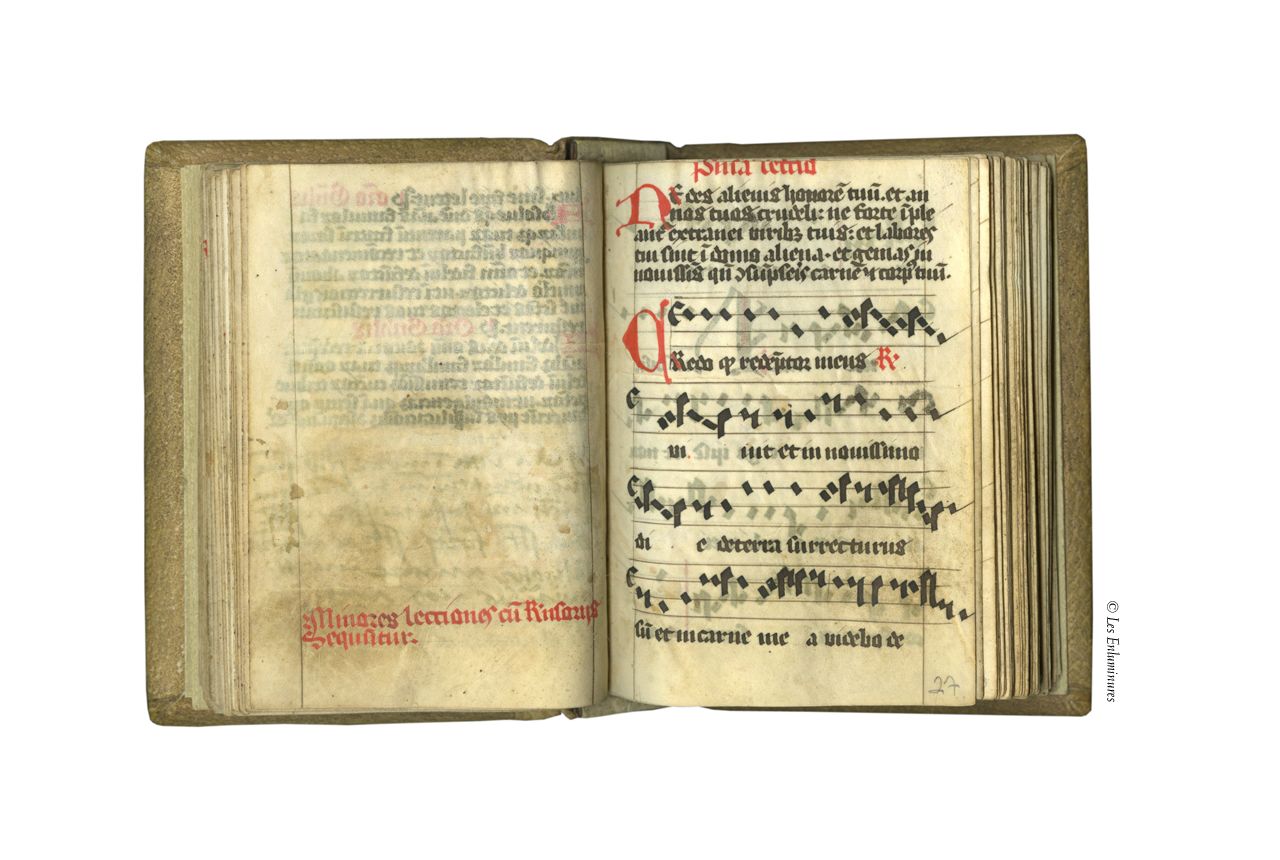 Minores lectiones cū Rn̄sorijs
Sequūtur.
Pma lectio
NE des alienis honorē tuū. et an
nos tuos crudeli: ne forte īple
ant̄ extranei viribꝫ tuis: et labores
tui sint ī domo aliena. et gemas in
nouissīs qn̄ ɔsūpseīs carnē ⁊ corpꝰ tuū.
CRedo ꝙ redēptor meus R̷
vi uit et in nouissimo
di e de terra surrecturus
sū et in carne me a videbo de
27
© Les Enluminures